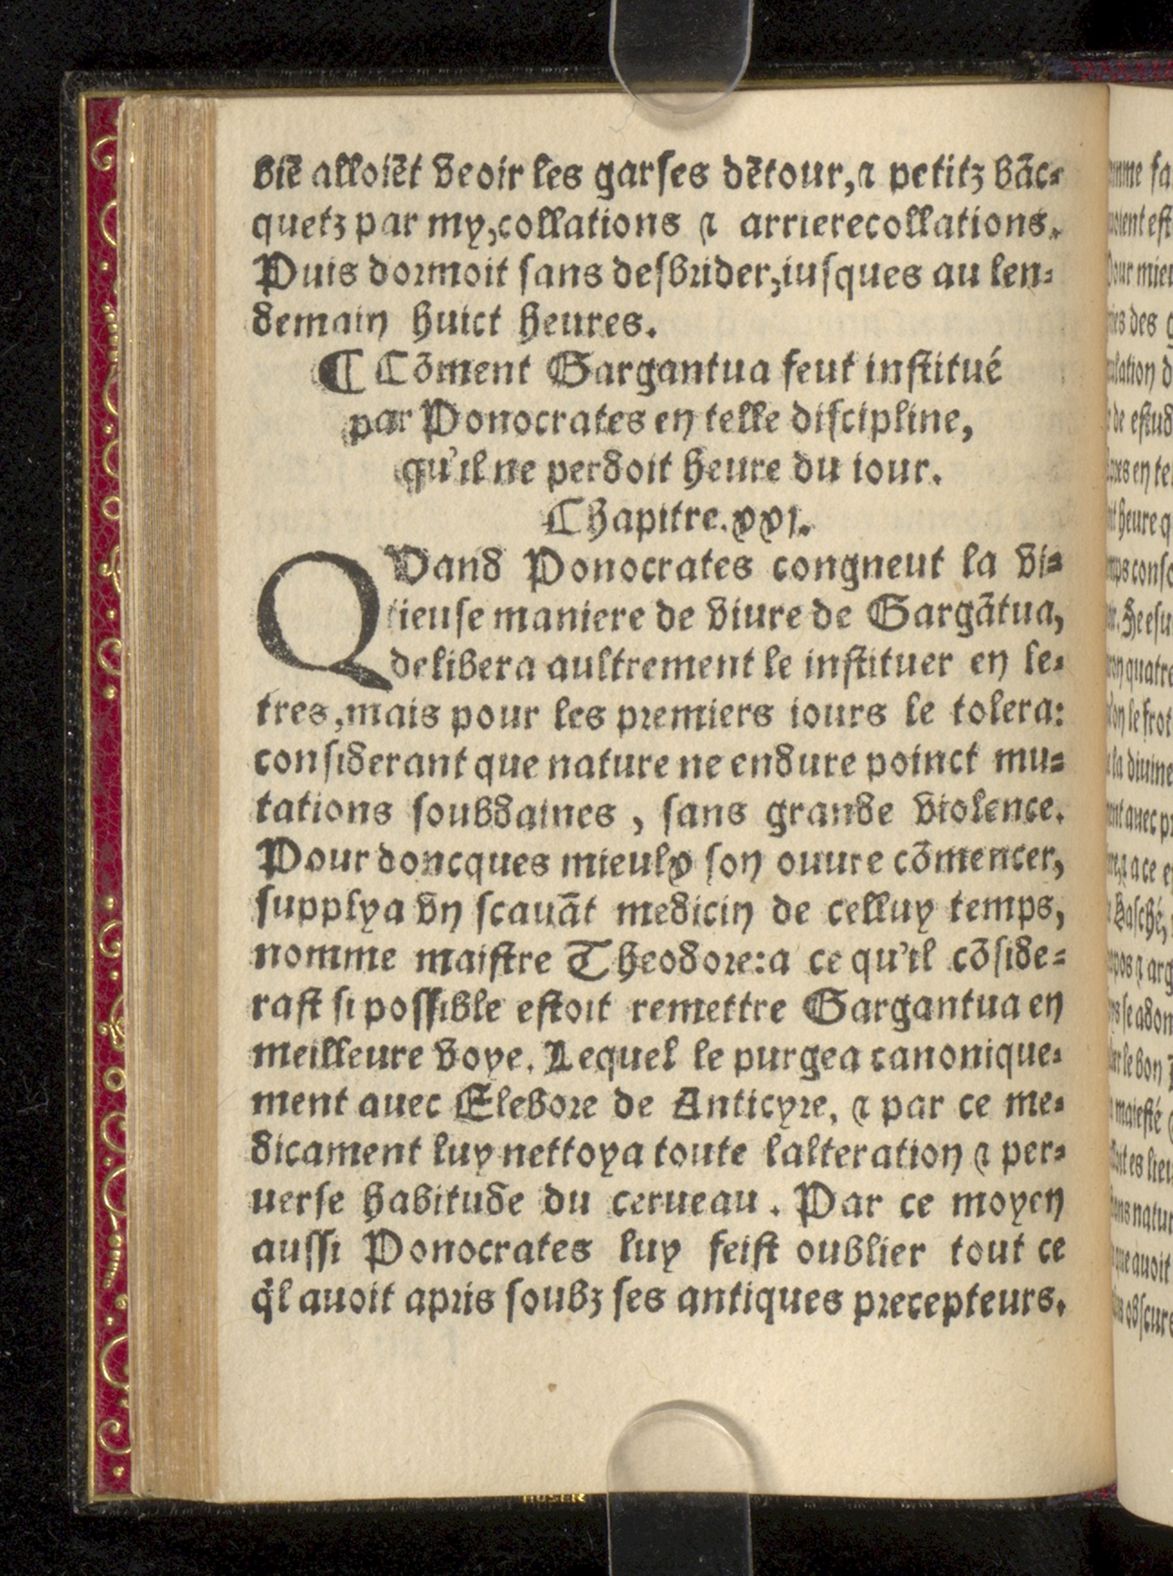 biẽ alloiẽt veoir les garses dẽtour, ⁊ petitz bãc-
quetz par my, collations ⁊ arrierecollations.
Puis dormoit sans desbrider, iusques au len-
demain huict heures.
¶ Cõment Gargantua feut institué
par Ponocrates en telle discipline,
qu'il ne perdoit heure du iour.
Chapitre. xxj.
QVand Ponocrates congneut la vi-
tieuse maniere de viure de Gargãtua,
delibera aultrement le instituer en le-
tres, mais pour les premiers iours le tolera:
considerant que nature ne endure poinct mu-
tations soubdaines, sans grande violence.
Pour doncques mieulx son ouure cõmencer,
supplya vn scauãt medicin de celluy temps,
nomme maistre Theodore: a ce qu'il cõside-
rast si possible estoit remettre Gargantua en
meilleure voye. Lequel le purgea canonique-
ment auec Elebore de Anticyre, ⁊ par ce me-
dicament luy nettoya toute lalteration ⁊ per-
uerse habitude du cerueau. Par ce moyen
aussi Ponocrates luy feist oublier tout ce
q̃l auoit apris soubz ses antiques precepteurs,